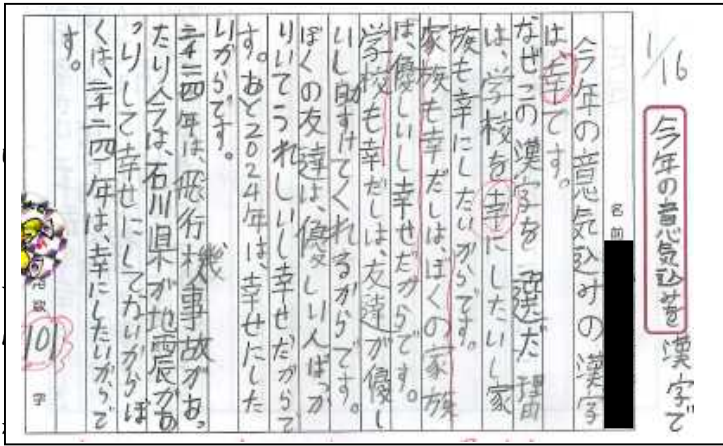 1/16
今年の意気込みを漢字で
名前
今年の意気込みの漢字
は、幸です。
なぜこの漢字を選だ理由
は、学校を幸にしたいし家
族も幸にしたいからです。
家族も幸だしは、ぼくの家族
は、優しいし幸せだからです。
学校も幸だしは、友達が優し
いし助すけてくれるからです。
ぼくの友達は、優しい人ばっか
りいてうれしいし幸せだからで
す。あと2024年は、幸せにした
いからです。
二千二四年は、飛行機事故があっ
たり今は、石川県が地震があ
つりして幸せにしてないからぼ
くは、二千二四年は、幸にしたいからで
す。
101
字